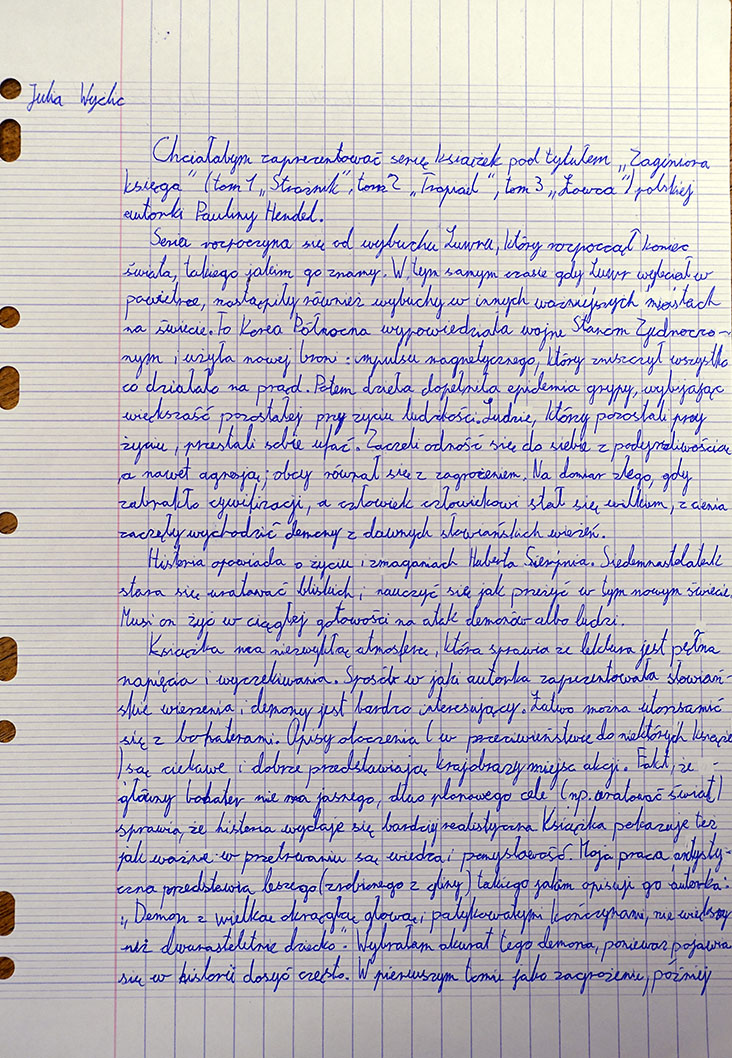 Julia Wyclic
Chciałabym zaprezentować serię książek pod tytułem „Zaginiona
księga" (tom 1 „Strażnik", tom 2 „Tropiciel", tom 3 „Łowca") polskiej
autorki Pauliny Hendel.
Seria rozpoczyna się od wybuchu Luwru, który rozpoczął koniec
świata, takiego jakim go znamy. W tym samym czasie gdy Luwr wyleciał w
powietrze, nastąpiły również wybuchy w innych ważniejszych miastach
na świecie. To Korea Północna wypowiedziała wojnę Stanom Zjednoczo-
nym i użyła nowej broni: impulsu magnetycznego, który zniszczył wszystko
co działało na prąd. Potem dzieła dopełniła epidemia grypy, wybijając
większość pozostałej przy życiu ludzkości. Ludzie, którzy pozostali przy
życiu, przestali sobie ufać. Zaczeli odnosić się do siebie z podejrzliwością
,a nawet agresją; obcy równał się z zagrożeniem. Na domiar złego, gdy
zabrakło cywilizacji, a człowiek człowiekowi stał się wilkiem, z cienia
zaczęły wychodzić demony z dawnych słowiańskich wierzeń.
Historia opowiada o życiu i zmaganiach Huberta Sierpnia. Siedemnastolatek
stara się uratować bliskich, i nauczyć się jak przeżyć w tym nowym świecie.
Musi on żyć w ciągłej gotowości na atak demonów albo ludzi.
Książka ma niezwykłą atmosferę, która sprawia że lektura jest pełna
napięcia i wyczekiwania. Sposób w jaki autorka zaprezentowała słowiań-
skie wierzenia i demony jest bardzo interesujący. Łatwo można utożsamić
się z bohaterami. Opisy otoczenia (w przeciwieństwie do niektórych książek
) są ciekawe i dobrze przedstawiają krajobrazy miejsc akcji. Fakt, że
główny bohater nie ma jasnego, długo planowego celu (np. uratować świat)
sprawia, że historia wydaje się bardziej realistyczna. Książka pokazuje też
jak ważne w przetrwaniu są wiedza i pomysłowość. Moja praca artysty-
czna przedstawia leszego (zrobionego z gliny) takiego jakim opisuje go autorka:
„Demon z wielką okrągłą głową i patykowatymi kończynami, nie większy
niż dwunastoletnie dziecko". Wybrałam akurat tego demona, ponieważ pojawia
się w historii dosyć często. W pierwszym tomie jako zagrożenie, później